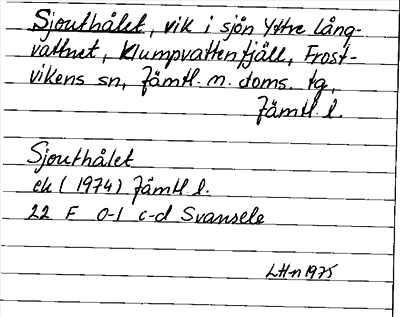 Sjouthålet, vik i sjön Yttre Lång-
vattnet, Klumpvattenfjäll, Frost-
vikens sn, Jämtl. m. doms. tg,
Jämtl. l.
Sjouthålet
ek (1974) Jämtl. l.
22 F 0-1 c-d Svansele
LH-n 1975